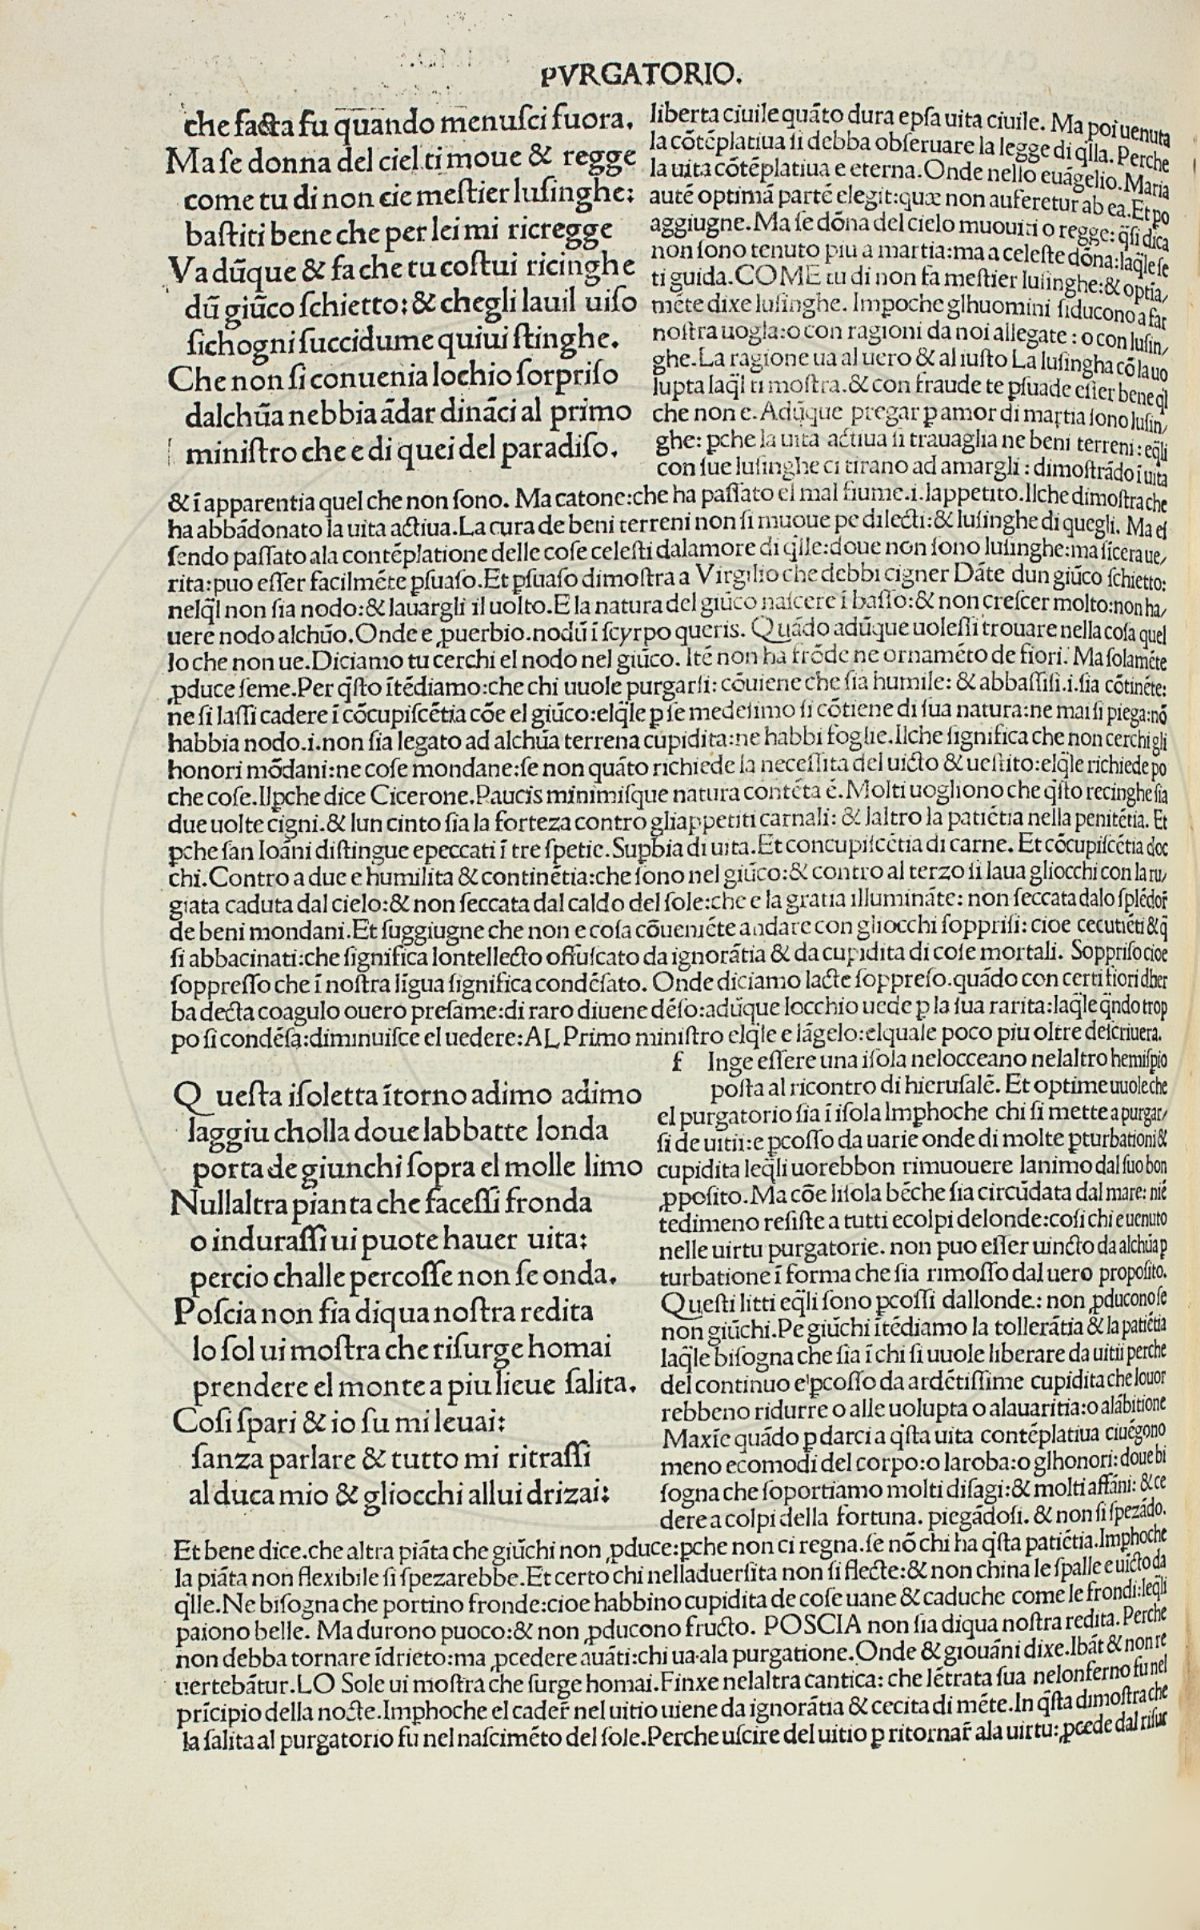 PVRGATORIO.
che facta fu quando menusci fuora.
Ma se donna del ciel ti moue & regge
come tu di non cie mestier lusinghe:
bastiti bene che per lei mi ricregge
Va dūque & fa che tu costui ricinghe
dū giūco schietto: & chegli lauil uiso
sichogni succidume quiui stinghe.
Che non si conuenia lochio sorpriso
dalchūa nebbia ādar dināci al primo
ministro che e di quei del paradiso.
liberta ciuile quāto dura epsa uita ciuile. Ma poi uenuta
la cōtēplatiua si debba obseruare la legge di q̄lla. Perche
la uita cōtēplatiua e eterna. Onde nello euāgelio. Maria
autē optimā partē elegit: quæ non auferetur ab ea. Et po
aggiugne. Ma se dōna del cielo muoui ti o regge: q̄si dica
non sono tenuto piu a martia: ma a celeste dōna: laq̄le se
ti guida. COME tu di non fa mestier lusinghe: & optīa/
mēte dixe lusinghe. Impoche glhuomini siducono a far
nostra uogla: o con ragioni da noi allegate: o con lusin/
ghe. La ragione ua al uero & al iusto La lusingha cō la uo
lupta laq̄l ti mostra. & con fraude te psuade esser bene q̄l
che non e. Adūque pregar p amor di martia sono lusin/
ghe: pche la uita actiua si trauaglia ne beni terreni: eq̄li
con sue lusinghe ci tirano ad amargli: dimostrādo i uita
& ī apparentia quel che non sono. Ma catone: che ha passato el mal fiume .i. lappetito. Ilche dimostra che
ha abbādonato la uita actiua. La cura de beni terreni non si muoue pe dilecti: & lusinghe di quegli. Ma es
sendo passato ala contēplatione delle cose celesti dalamore di q̄lle: doue non sono lusinghe: ma sicera ue/
rita: puo esser facilmēte psuaso. Et psuaso dimostra a Virgilio che debbi cigner Dāte dun giūco schietto:
nelq̄l non sia nodo: & lauargli il uolto. E la natura del giūco nascere ī basso: & non crescer molto: non ha/
uere nodo alchūo. Onde e ꝓuerbio. nodū ī scyrpo queris. Quādo adūque uolesti trouare nella cosa quel
lo che non ue. Diciamo tu cerchi el nodo nel giūco. Itē non ha frōde ne ornamēto de fiori. Ma solamēte
ꝓduce seme. Per q̄sto ītēdiamo: che chi uuole purgarsi: cōuiene che sia humile: & abbassisi .i. sia cōtinēte:
ne si lassi cadere ī cōcupiscētia cōe el giūco: elq̄le p se medesimo si cōtiene di sua natura: ne mai si piega: nō
habbia nodo .i. non sia legato ad alchūa terrena cupidita: ne habbi foglie. Ilche significa che non cerchi gli
honori mōdani: ne cose mondane: se non quāto richiede la necessita del uicto & uestito: elq̄le richiede po
che cose. Ilpche dice Cicerone. Paucis minimisque natura contēta ē. Molti uogliono che q̄sto recinghe sia
due uolte cigni. & lun cinto sia la forteza contro gliappetiti carnali: & laltro la patiētia nella penitētia. Et
pche san Ioāni distingue epeccati ī tre spetie. Supbia di uita. Et concupiscētia di carne. Et cōcupiscētia doc
chi. Contro a due e humilita & continētia: che sono nel giūco: & contro al terzo si laua gliocchi con la ru/
giata caduta dal cielo: & non seccata dal caldo del sole: che e la gratia illumināte: non seccata dalo splēdor̄
de beni mondani. Et suggiugne che non e cosa cōueniēte andare con gliocchi sopprisi: cioe cecutiēti & q̄
si abbacinati: che significa lontellecto offuscato da ignorātia & da cupidita di cose mortali. Soppriso cioe
soppresso che ī nostra līgua significa condēsato. Onde diciamo lacte soppreso. quādo con certi fiori dher
ba decta coagulo ouero presame: di raro diuene dēso: adūque locchio uede p la sua rarita: laq̄le q̄ndo trop
po si condēsa: diminuisce el uedere: AL Primo ministro elq̄le e lāgelo: elquale poco piu oltre descriuera.
Questa isoletta ītorno adimo adimo
laggiu cholla doue labbatte londa
porta de giunchi sopra el molle limo
Nullaltra pianta che facessi fronda
o indurassi ui puote hauer uita:
percio challe percosse non se onda.
Poscia non sia diqua nostra redita
lo sol ui mostra che risurge homai
prendere el monte a piu lieue salita.
Cosi spari & io su mi leuai:
sanza parlare & tutto mi ritrassi
al duca mio & gliocchi allui drizai:
f Inge essere una isola nelocceano nelaltro hemispio
posta al ricontro di hierusalē. Et optime uuole che
el purgatorio sia ī isola Imphoche chi si mette a purgar/
si de uitii: e pcosso da uarie onde di molte pturbationi &
cupidita leq̄li uorebbon rimuouere lanimo dal suo bon
ꝓposito. Ma cōe lisola bēche sia circūdata dal mare: niē
tedimeno resiste a tutti ecolpi delonde: cosi chi e uenuto
nelle uirtu purgatorie. non puo esser uincto da alchūa p
turbatione ī forma che sia rimosso dal uero proposito.
Questi litti eq̄li sono pcossi dallonde: non ꝓducono se
non giūchi. Pe giūchi ītēdiamo la tollerātia & la patiētia
laq̄le bisogna che sia ī chi si uuole liberare da uitii perche
del continuo e pcosso da ardētissime cupidita che louor
rebbeno ridurre o alle uolupta o alauaritia: o alābitione
Maxīe quādo p darci a q̄sta uita contēplatiua ciuēgono
meno ecomodi del corpo: o laroba: o glhonori: doue bi
sogna che soportiamo molti disagi: & molti affāni: & ce
dere a colpi della fortuna. piegādosi. & non si spezādo.
Et bene dice. che altra piāta che giūchi non ꝓduce: pche non ci regna. se nō chi ha q̄sta patiētia. Imphoche
la piāta non flexibile si spezarebbe. Et certo chi nelladuersita non si flecte: & non china le spalle e uicto da
q̄lle. Ne bisogna che portino fronde: cioe habbino cupidita de cose uane & caduche come le frondi: leq̄li
paiono belle. Ma durono puoco: & non ꝓducono fructo. POSCIA non sia diqua nostra redita. Perche
non debba tornare īdrieto: ma ꝓcedere auāti: chi ua ala purgatione. Onde & giouāni dixe. Ibāt & non re
uertebātur. LO Sole ui mostra che surge homai. Finxe nelaltra cantica: che lētrata sua nelonferno fu nel
prīcipio della nocte. Imphoche el cader̄ nel uitio uiene da ignorātia & cecita di mēte. In q̄sta dimostra che
la salita al purgatorio fu nel nascimēto del sole. Perche uscire del uitio p ritornar̄ ala uirtu: ꝓcede dal risur